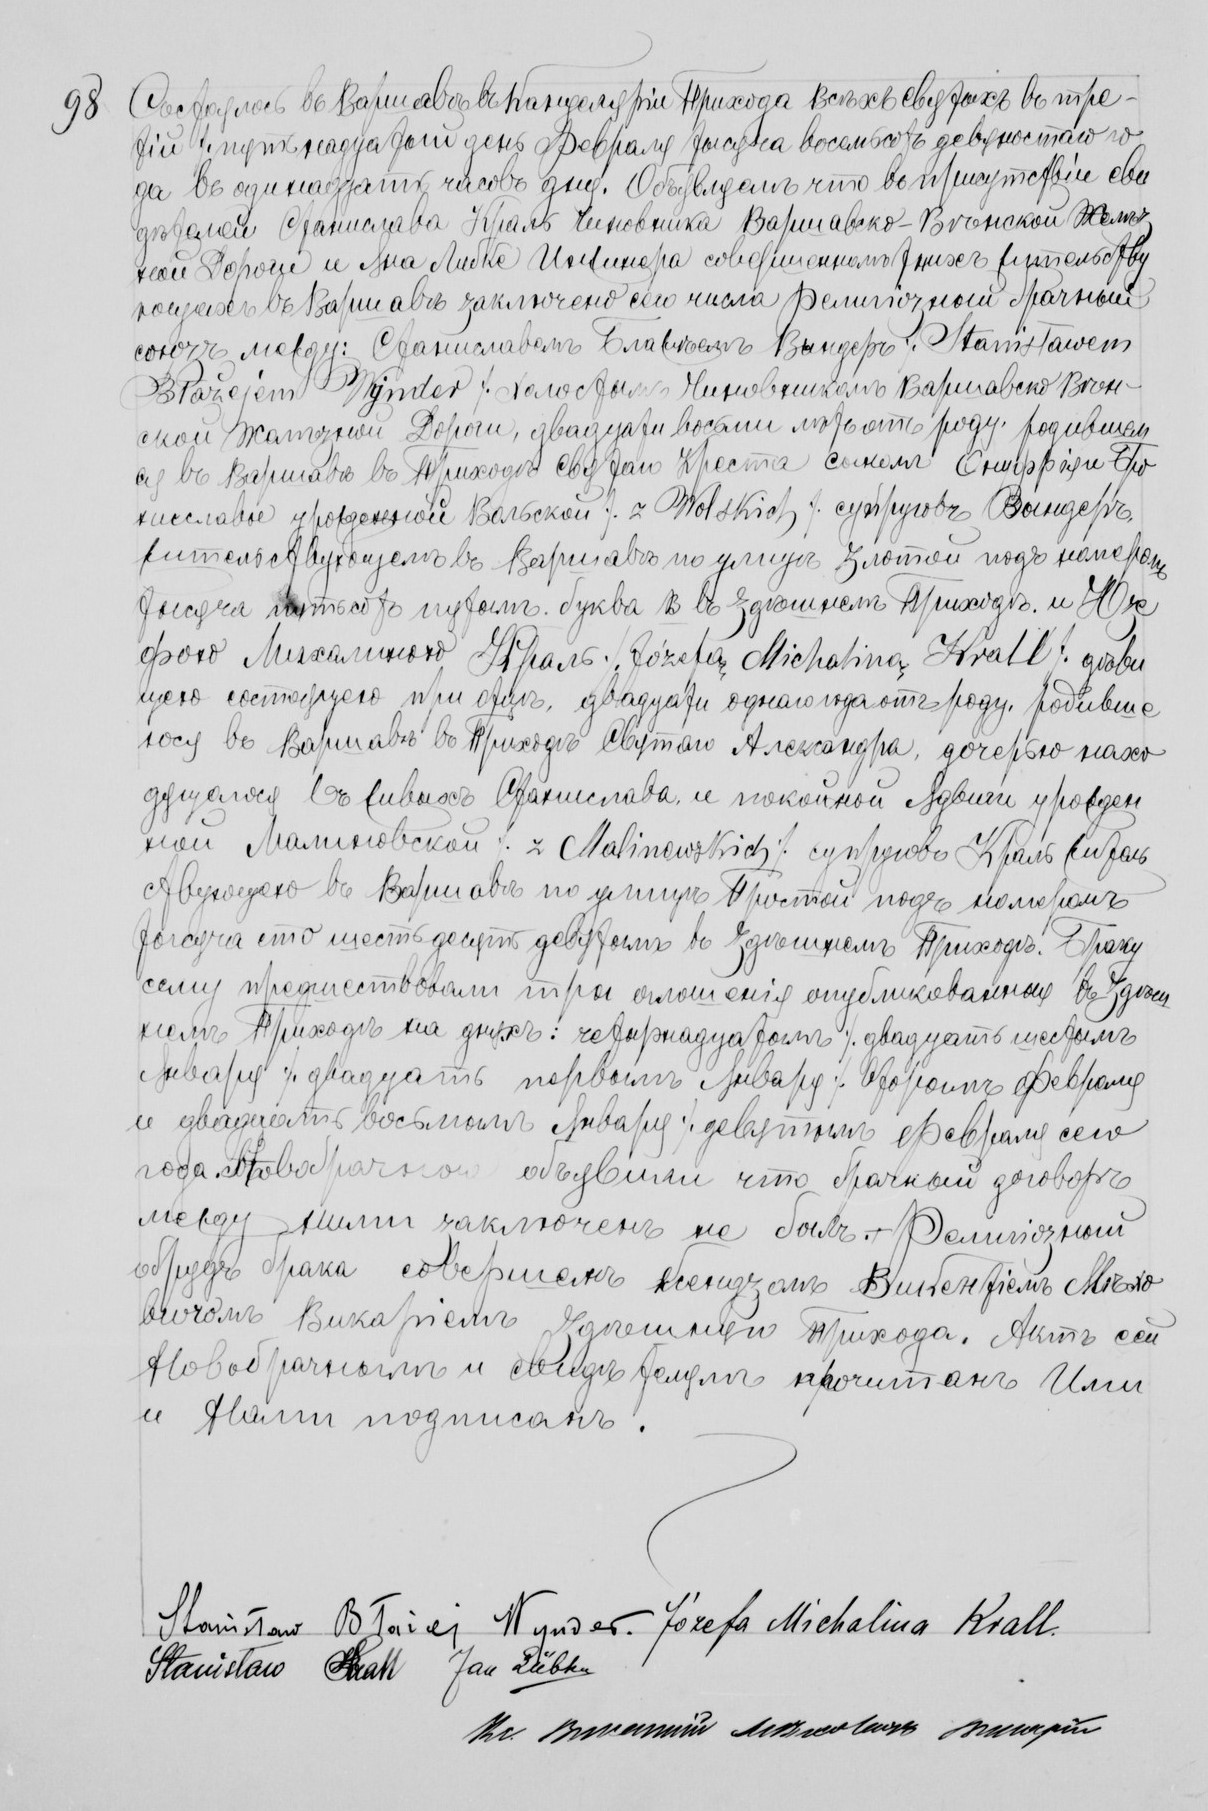 98 Состоялось въ Варшавѣ въ Канцеляріи Прихода Всѣхъ Святыхъ въ тре-
тій /: пятнадцатый день Февраля тысяча восемьсотъ девяностаго го
да въ одинадцать часовъ дня. Объявляемъ что въ присутствіи сви
дѣтелей Станислава Краль Чиновника Варшавско-Вѣнской Желѣз
ной Дороги и Яна Либке совершеннолѣтнихъ жительству
ющихъ въ Варшавѣ заключенъ сего числа Религіозный брачный
союзъ между: Станиславомъ Блажеемъ Вындеръ /: Stanisławem
Błażejem Wynder /: холостымъ Чиновникомъ Варшавско Вѣн-
ской Желѣзной Дороги, двадцати восьми лѣтъ отъ роду, родившем
ся въ Варшавѣ въ Приходѣ Святаго Креста сыномъ Онуфрія и Бро
ниславы урожденной Вольской /: z Wolskich /: супруговъ Вындеръ,
жительствующемъ въ Варшавѣ по улицѣ Злотой подъ номеромъ
тысяча пятьсотъ пятымъ буква В въ здѣшнемъ Приходѣ. и Юзе
фою Михалиною Краль /: Józefą Michaliną Krall /: дѣви
цею состоящею при отцѣ, двадцати однаго года отъ роду, родивше
юся въ Варшавѣ въ Приходѣ Святаго Александра, дочерью нахо
дящагося въ живыхъ Станислава, и покойной Ядвиги урожден
ной Малиновской /: z Malinowskich /: супруговъ Краль житель
ствующею въ Варшавѣ по улицѣ Простой подъ номеромъ
тысяча сто шестьдесятъ девятымъ въ здѣшнемъ Приходѣ. Браку
сему предшествовали три оглошенія опубликованныя въ Здѣш
немъ Приходѣ на дняхъ: четырнадцатымъ /: двадцать шестымъ
Января /: двадцать первымъ Января /: вторымъ Февраля
и двадцать восьмымъ Января /: девятымъ Февраля сего
года. Новобрачною объявили что брачный договоръ
между ними заключенъ не былъ. Религіозный
обрядъ брака совершенъ Ксендзомъ Викентіемъ Мѣхо
вичомъ Викаріемъ Здѣшняго Прихода. Актъ сей
Новобрачнымъ и свидѣтелямъ прочитанъ Ими
и Нами подписанъ.
Stanisław Błażej Wynder. Józefa Michalina Krall.
Stanisław Krall Jan Lübke
Кс. Викентій Мѣховичъ Викарій